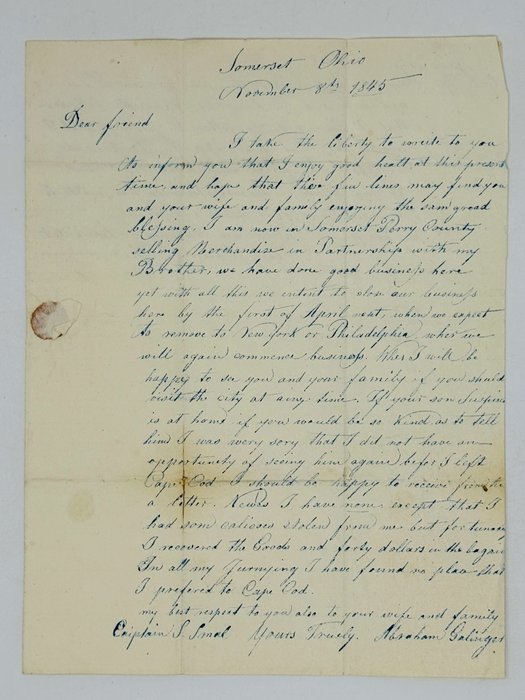 Somerset Ohio
November 8th 1845
Dear friend
I take the liberty to write to you
to inform you that I enjoy good healt at this present
time, and hope that these few lines may find you
and your wife and family enjoying the sam good
blessing. I am now in Somerset Perry County
selling Merchandise in Partnership with my
Brother, we have done good business here
yet with all this we intent to close our business
here by the first of April next, when we expect
to remove to New York or Philadelphia wher we
will again commence business. Wher I will be
happy to see you and your family if you should
visit the city at any time. If your son
is at home if you would be so kind as to tell
him I was very sory that I did not have an
opportunity of seeing him again befor I left
Cape Cod I should be happy to receive from
a letter. Newes I have none except that I
had som calicoes stolen from me but
I recovered the Goods and forty dollars in the bagain
In all my Jurnying I have found no place that
I prefered to Cape Cod.
my best respect to you also to your wife and family
Captain S. Smal Yours Truely. Abraham Galinger